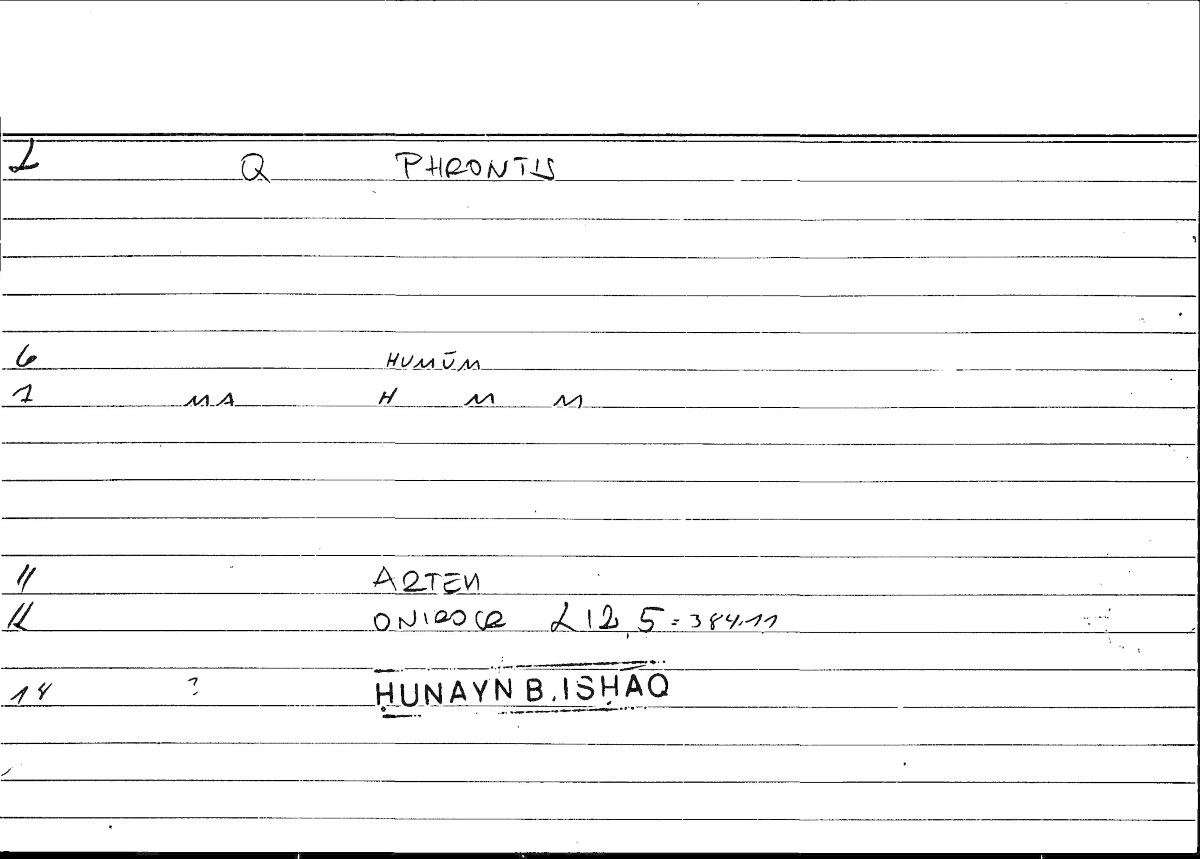 1 Q PHRONTIS
6 HUMŪM
7 MA H M M
11 ARTEM
12 ONIROCR 212,5=384.11
14 ? ḤUNAYN B. ISḤAQ